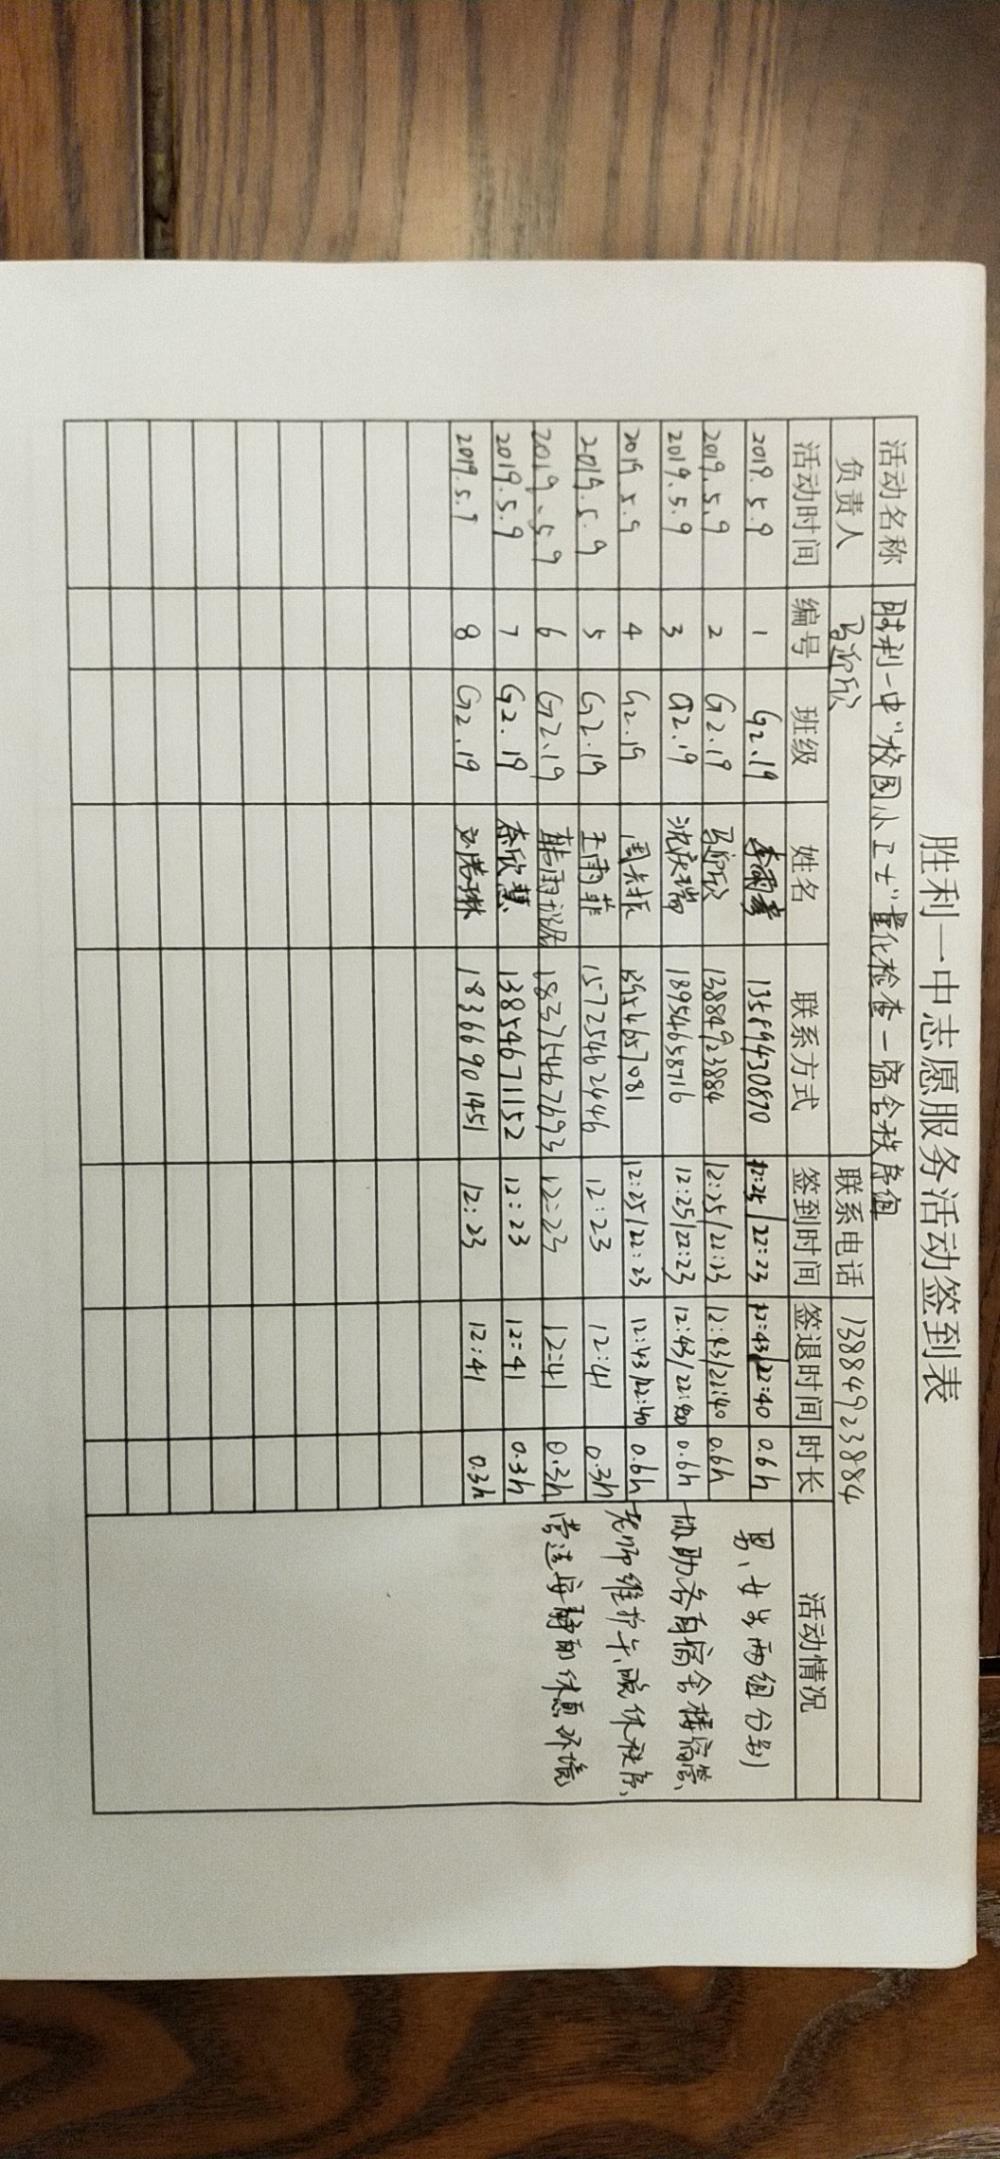 胜利一中志愿服务活动签到表
活动名称 胜利一中"校园小卫士"量化检查—宿舍秩序组
负责人 联系电话 13884923884
活动时间 编号 班级 姓名 联系方式 签到时间 签退时间 时长 活动情况
2019.5.9 1 G2.19 13589430870 12:25/22:23 12:43/22:40 0.6h
2019.5.9 2 G2.19 13884923884 12:25/22:23 12:43/22:40 0.6h
2019.5.9 3 G2.19 沈庆瑞 18954658716 12:25/22:23 12:43/22:40 0.6h
2019.5.9 4 G2.19 12:25/22:23 12:43/22:40 0.6h
2019.5.9 5 G2.19 王雨菲 15725462446 12:23 12:41 0.3h
2019.5.9 6 G2.19 18375467693 12:23 12:41 0.3h
2019.5.9 7 G2.19 秦欣慧 13854671152 12:23 12:41 0.3h
2019.5.9 8 G2.19 18366901451 12:23 12:41 0.3h
男、女生两组分别
协助各自宿舍楼宿管
老师维护午、晚休秩序,
营造安静的休息环境